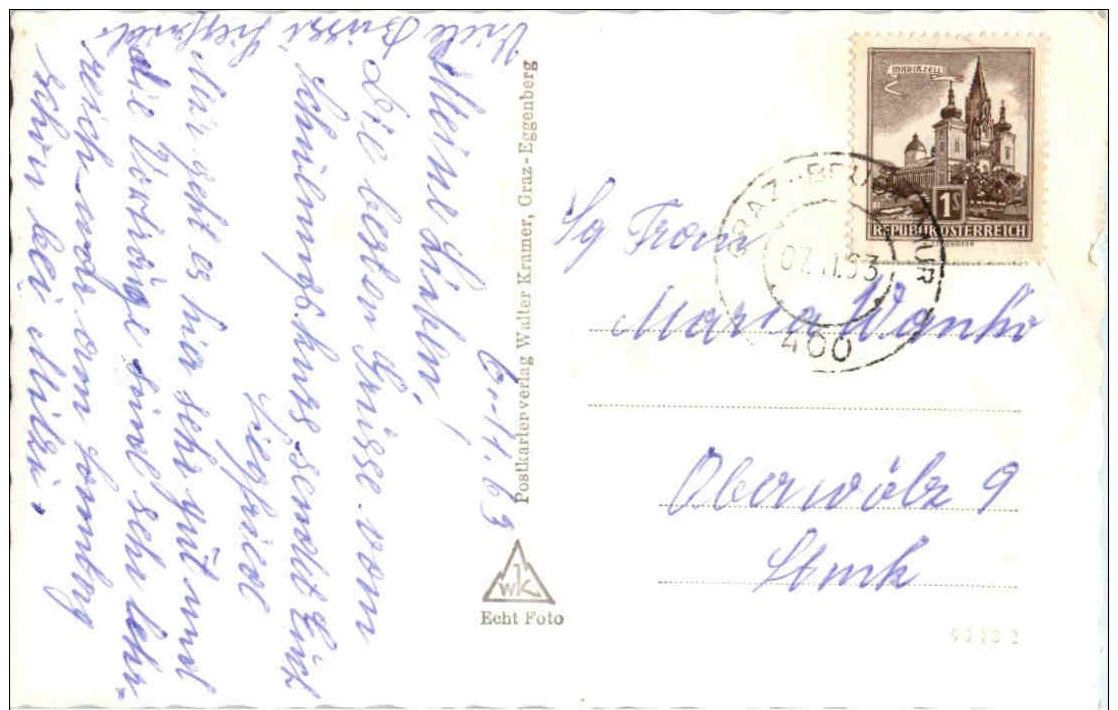 6.11.63
Meine Lieben!
Die besten Grüsse vom
Schulungskurs sendet Euch
Siegfried
Mir geht es hier sehr gut und
die Vorträge sind sehr lehr=
reich war am Sonntag
schon bei Mitzi.
Viele Bussi Siegfried
Postkartenverlag Walter Kramer, Graz-Eggenberg
WK
Echt Foto
MARIAZELL
1S
REPUBLIK ÖSTERREICH
GRAZ
07.11.63
400
Sg Frau
Maria Wanko
Oberwölz 9
Stmk